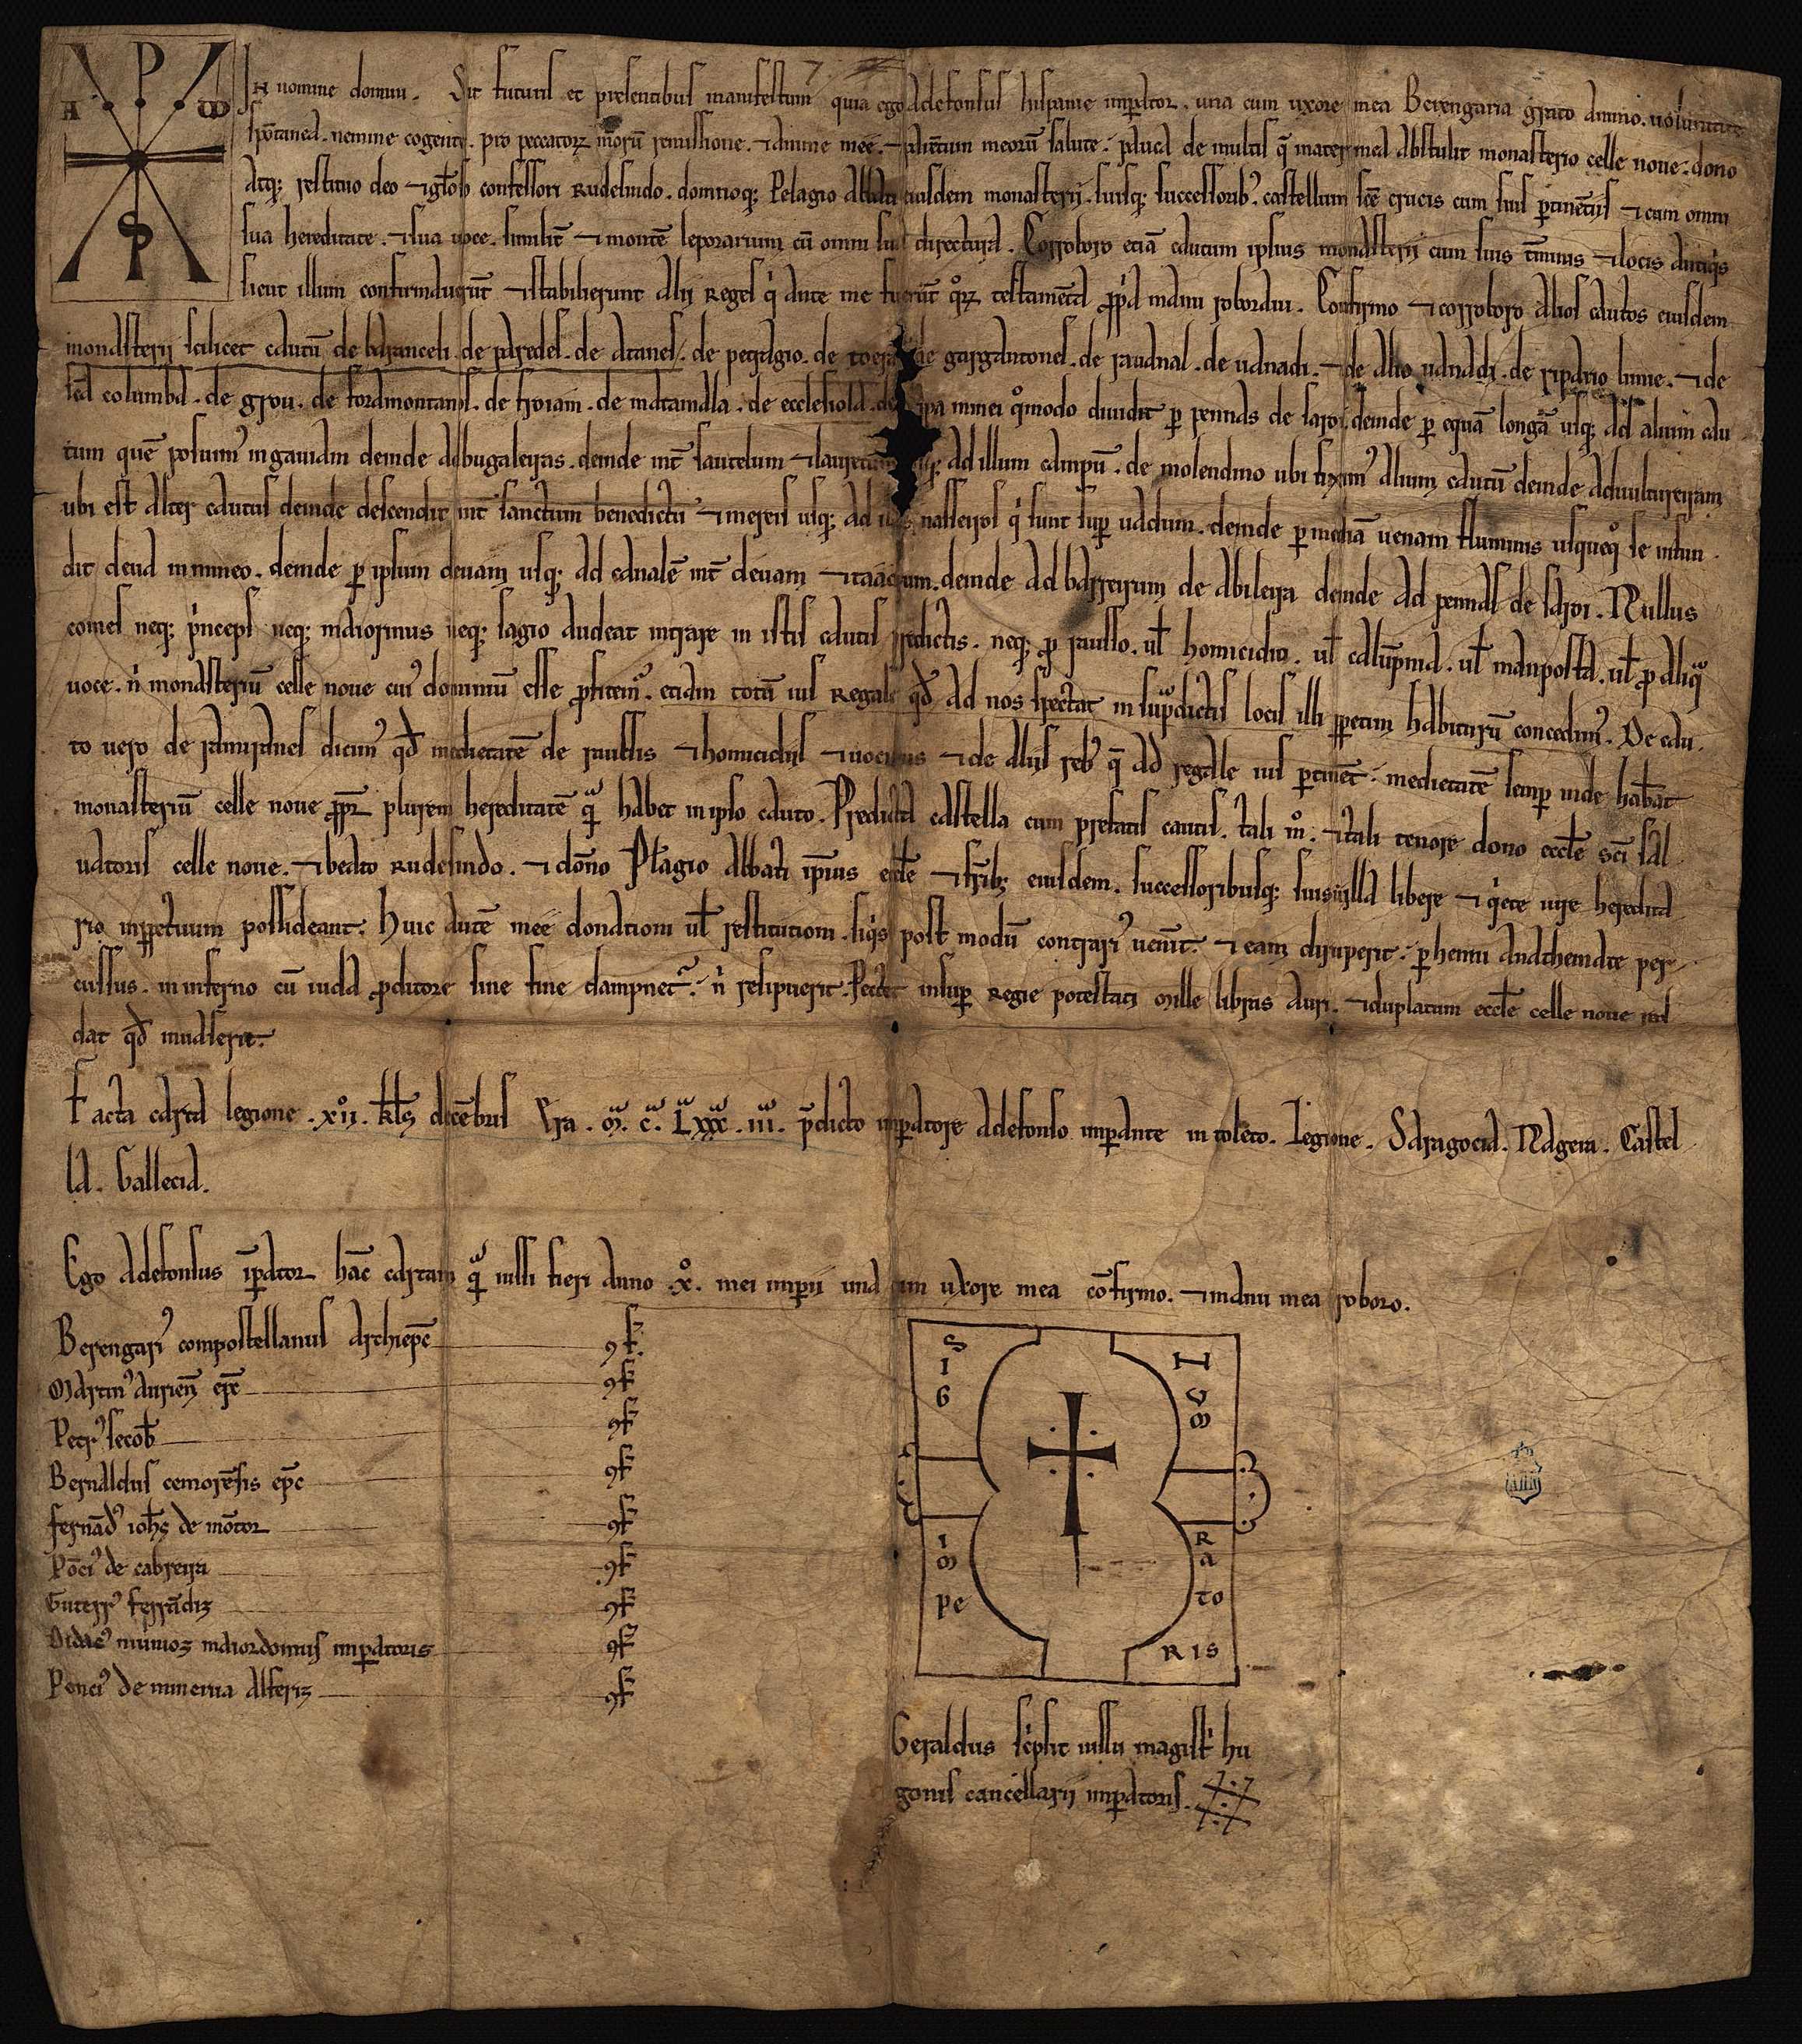 A P ω
IN nomine domini. Sit futuris et presentibus manifestum quia ego Adefonsus hispanie imperator. una cum uxore mea Berengaria grato animo. uoluntate
spõtanea. nemine cogente. pro peccatorꝝ meorũ remissione. ⁊ anime mee. ⁊ parẽtum meorũ salute. pauca de multis q̃ mater mea abstulit monasterio celle noue. dono
atq; restituo deo ⁊ gl̃oso confessori Rudesindo. domnoq; Pelagio abbati eiusdem monasterij. suisq; successorib⁹. castellum sc̃e crucis cum suis ꝑtinẽtijs ⁊ cum omni
sua hereditate. ⁊ sua uoce. similit̃ ⁊ montẽ leporarium cũ omni sua directura. Corroboro etiã cautum ipsius monasterij cum suis t̃minis ⁊ locis antiq̇s
sicut illum confirmauerũt ⁊ stabilierunt alij Reges q̇ ante me fuerũt q̊rꝝ testamẽta ꝓp̃a manu roboraui. Confirmo ⁊ corroboro alios cautos eiusdem
monasterij scilicet cautũ de baranceli. de paredes. de atanes. de petragio. de gargantones. de raudnal. de uanadi. ⁊ de alio uanaddi. de ripario limie. ⁊ de
sc̃a columba. de grou. de fordmontanos. de troiam. de matamala. de ecclesiola. de ripa minei q̊modo diuidit ꝑ pennas de saroi. deinde ꝑ equã longã usq; ad alium cau
tum quẽ posuim⁹ in gauiam deinde ad bugaleiras. deinde int̃ sautelum ⁊ lauretum usq; ad illum campũ. de molendino ubi fixim⁹ alium cautũ deinde ad uultureiram
ubi est alter cautus deinde descendit int̃ sanctum benedictũ ⁊ mereis usq; ad illos nasseiros q̇ sunt suꝑ uadum. deinde ꝑ mediã uenam fluminis usqueq̊ se infun
dit deua in mineo. deinde ꝑ ipsum deuam usq; ad canalẽ int̃ deuam ⁊ deinde ad barreirum de abileira deinde ad pennas de saroi. Nullus
comes neq; p̍nceps neq; maiorinus neq; sagio audeat intrare in istis cautis predictis. neq; ꝓ rausso. ul̃ homicidio. ul̃ calũpnia. ul̃ manposta. ul̃ ꝓ aliq̃
uoce. n̍ monasteriũ celle noue cui⁹ dominiũ esse ꝓfitem⁹. etiam totũ ius Regale qd̃ ad nos spectat in sup̃dictis locis illi ꝑpetim habiturũ concedim⁹. De cau
to uero de ramiranes dicim⁹ qd̃ medietatẽ de rausis ⁊ homicidijs ⁊ uocibus ⁊ de alijs reb⁹ q̃ ad regale ius ꝑtinẽt. medietatẽ semꝑ inde hab̃at
monasteriũ celle noue ꝓpt̃ plurem hereditatẽ q̃ habet in ipso cauto. Predicta castella cum prefatis cautis. tali m̊. ⁊ tali tenore dono eccl̃e sc̃i sal
uatoris celle noue. ⁊ beato Rudesindo. ⁊ dõno Pl̃agio abbati ip̃ius eccl̃e ⁊ fr̃ib; eiusdem. successoribusq; suis ut illa libere ⁊ q̇ete iure heredita
rio inꝑpetuum possideant. Huic autẽ mee donationi ul̃ restitutioni. siq̇s post modũ contrari⁹ uenĩt. ⁊ eam diruperit. ꝑhenni anathemate per
cussus. in inferno cũ iuda ꝓditore sine fine dampnet̃. n̍ resipuerit. Pectet insuꝑ Regie potestati mille libras auri. ⁊ duplatum eccl̃e celle noue red
dat qd̃ inuaserit.
Facta carta legione .xii. kl̃s decẽbris Era .m̃. c̃. Lxxx̃. iii̇. p̃dicto imꝑatore Adefonso imꝑante in toleto. Legione. Saragocia. Nagera. Castel
la. Gallecia.
Ego adefonsus ip̃ator hãc cartam q̃ iussi fieri anno x̊. mei imꝑii una cum uxore mea cõfirmo. ⁊ manu mea roboro.
Berengari⁹ compostellanus archiep̃c ꝯf.
Martin⁹ auriẽñ ep̃c ꝯf
Petr⁹ secob̃ ꝯf
Bernaldus cemorẽsis ep̃c ꝯf
fernãd⁹ ioh̃s de mõtor ꝯf
Põci⁹ de cabreira ꝯf
Guterr⁹ ferrãdiz ꝯf
Didac⁹ munioz maiordomus imꝑatoris ꝯf
Ponci⁹ de minerua alferiz ꝯf
SIG
NUM
IMPE
RATO
RIS
Geraldus sc̍psit iussu magist̍ hu
gonis cancellarii imꝑatoris.